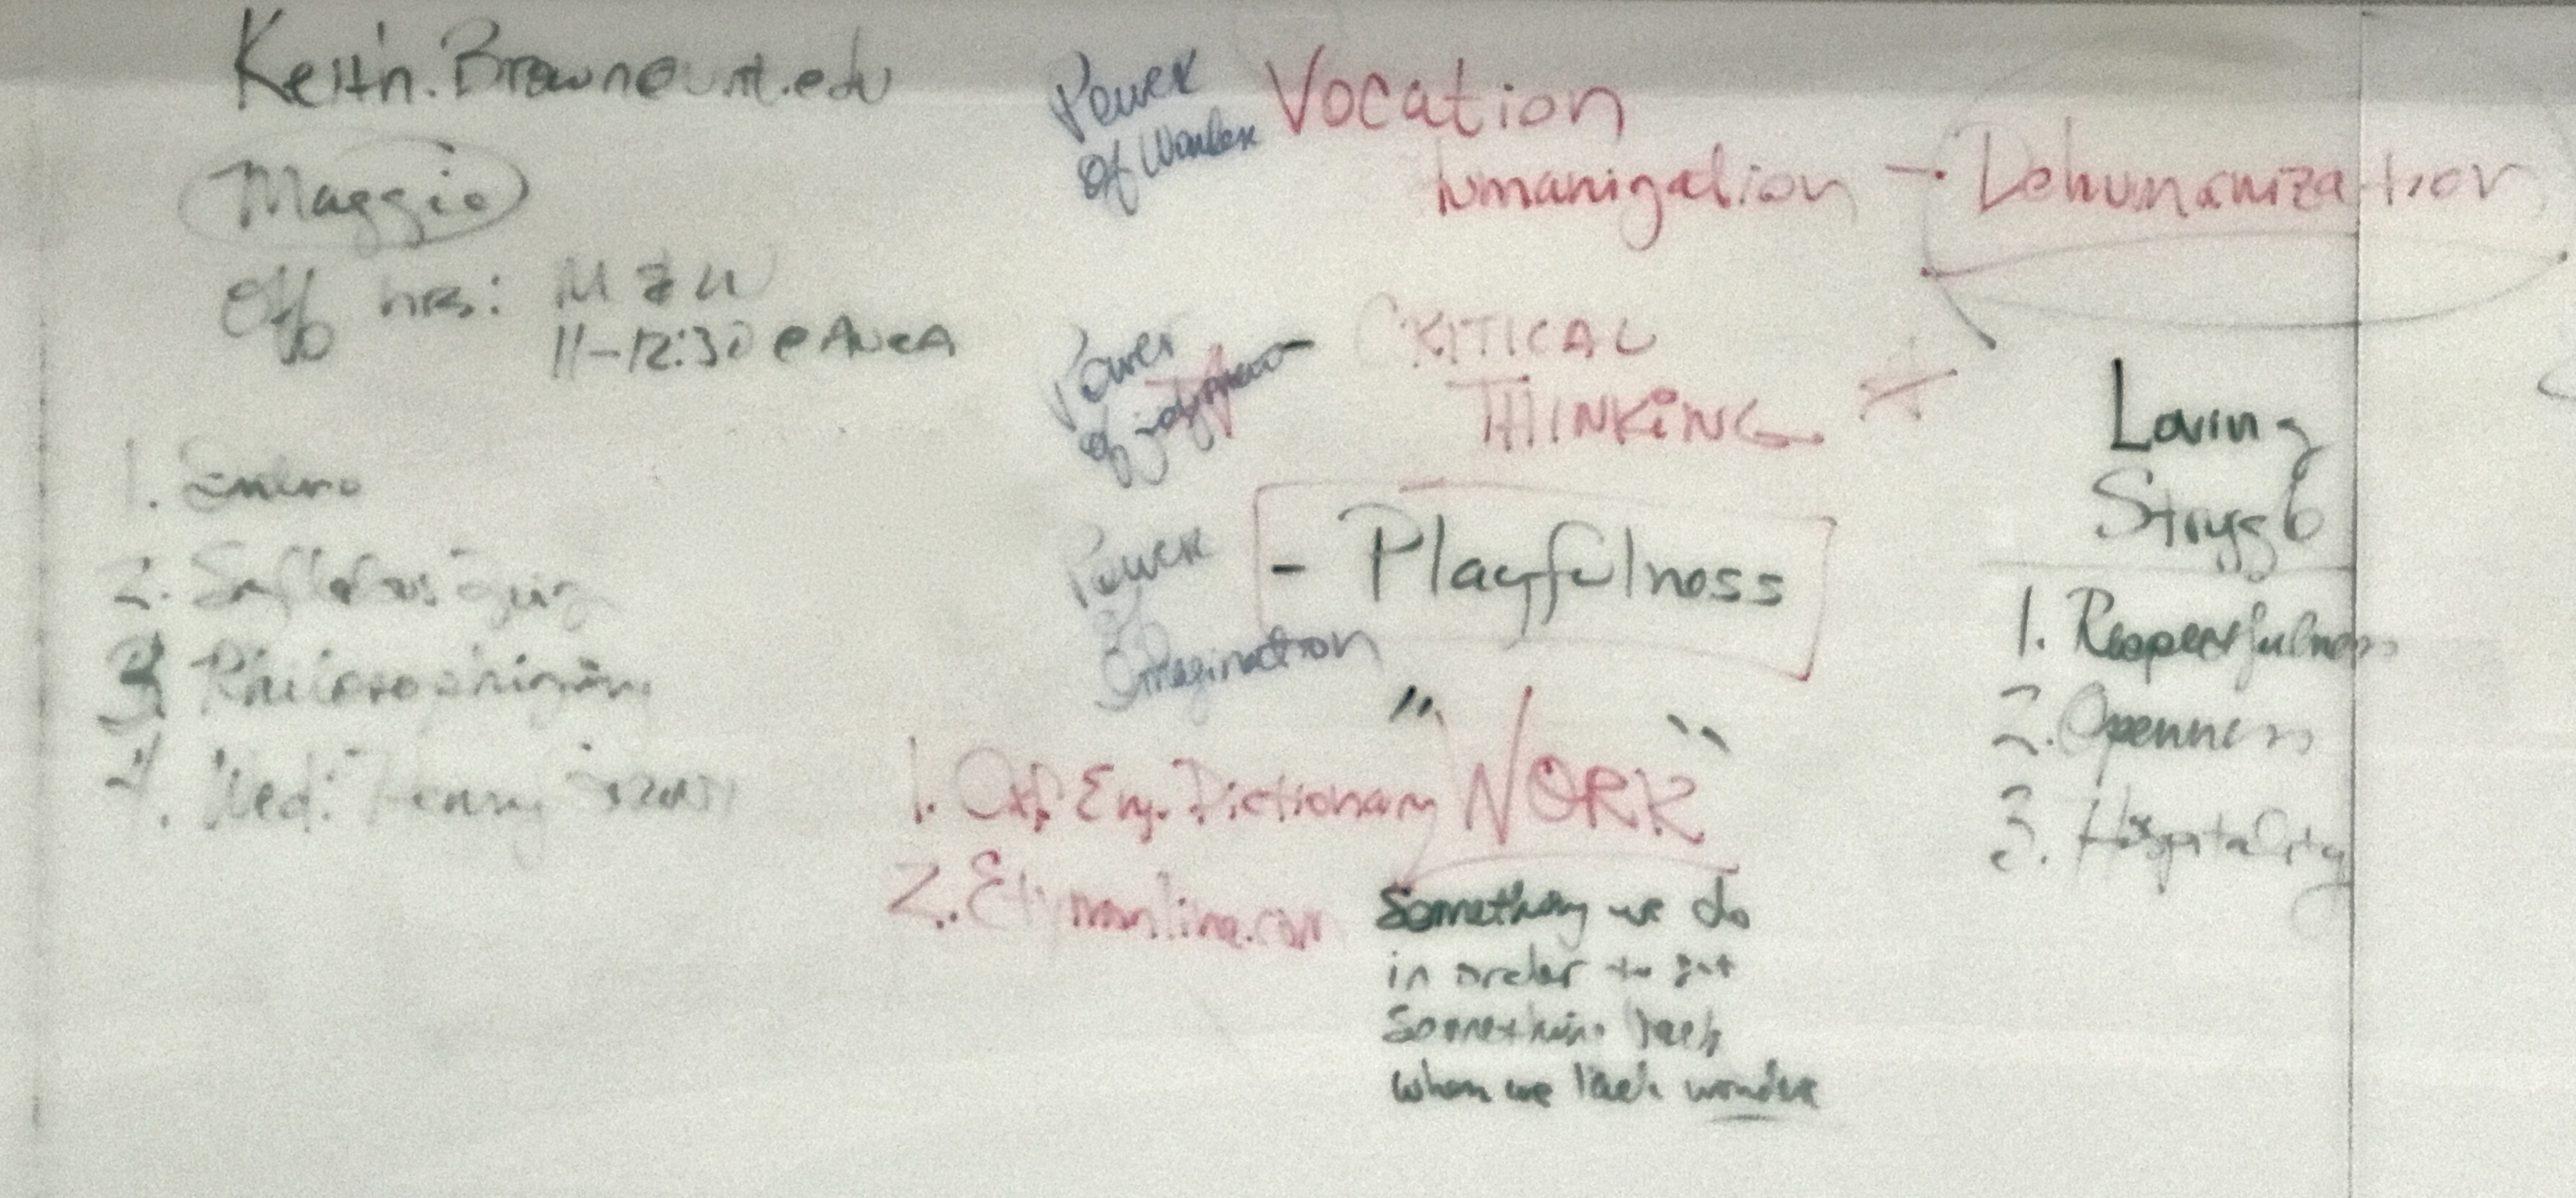 Keith.Brown@unt.edu
Maggio
Off hrs: M & W
11-12:30 @
1. Intro
2.
3. Philosophizing
4. Med: Henny
Power
of Wonder
Vocation
Humanization - Dehumanization
Power
of judgment
- CRITICAL
THINKING
Power
of
Imagination
- Playfulness
"WORK"
1. Oxf. Eng. Dictionary
2. Etymonline.com
Something we do
in order to get
Something back
when we lack wonder
Loving
1. Respectfulness
2. Openness
3. Hospitality